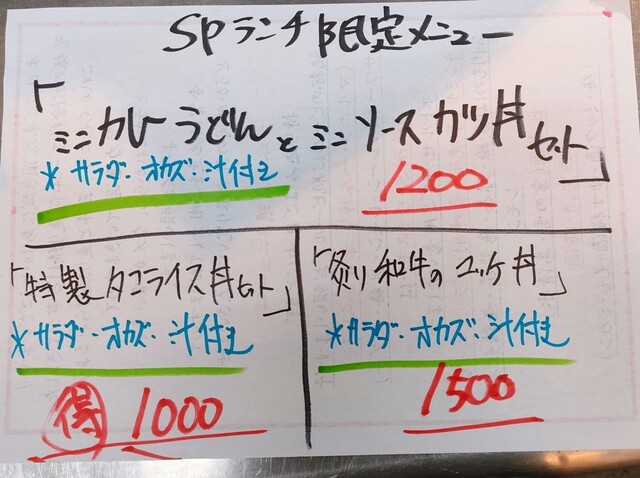 SPランチ限定メニュー
「ミニカレーうどんとミニソースカツ丼セット」
*サラダ・オカズ・汁付き
1200
「特製タコライス丼セット」
*サラダ・オカズ・汁付き
得 1000
「炙り和牛のユッケ丼」
*サラダ・オカズ・汁付き
1500